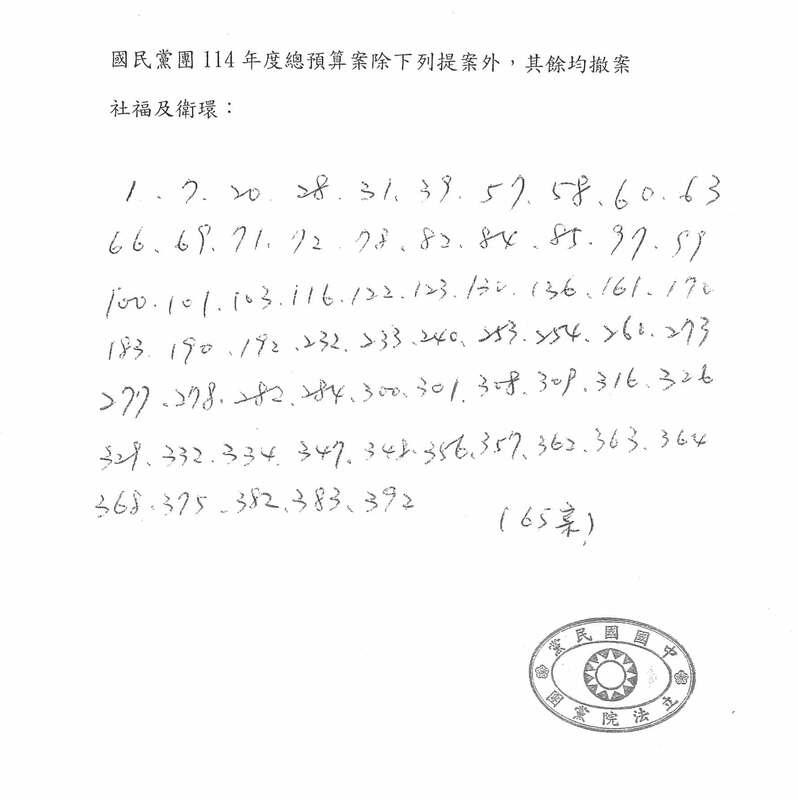 國民黨團 114 年度總預算案除下列提案外，其餘均撤案
社福及衛環：
1、7、20、28、31、39、57、58、60、63
66、69、71、72、78、82、84、85、97、99
100、101、103、116、122、123、130、136、161、170
183、190、192、232、233、240、253、254、262、273
277、278、282、284、300、301、308、309、316、326
329、332、334、347、348、356、357、362、363、364
368、375、382、383、392
（65案）
中國國民黨
立法院黨團